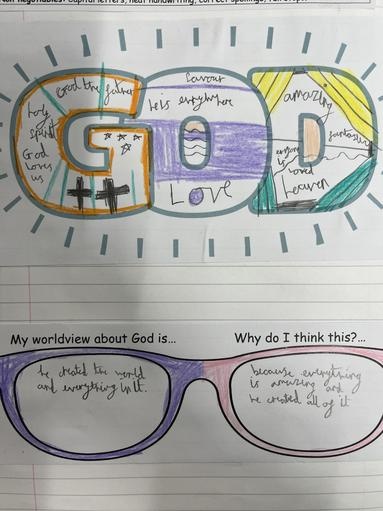 Non negotiables: Capital letters, neat handwriting, correct spellings, full stops.
GOD
God the father
holy
spirit
God
loves
us
Savour
he is everywhere
Love
amazing
fantastic
everyone
is
loved
heaven
My worldview about God is...
he created the world
and everything in it.
Why do I think this?...
because everything
is amazing and
he created all of it